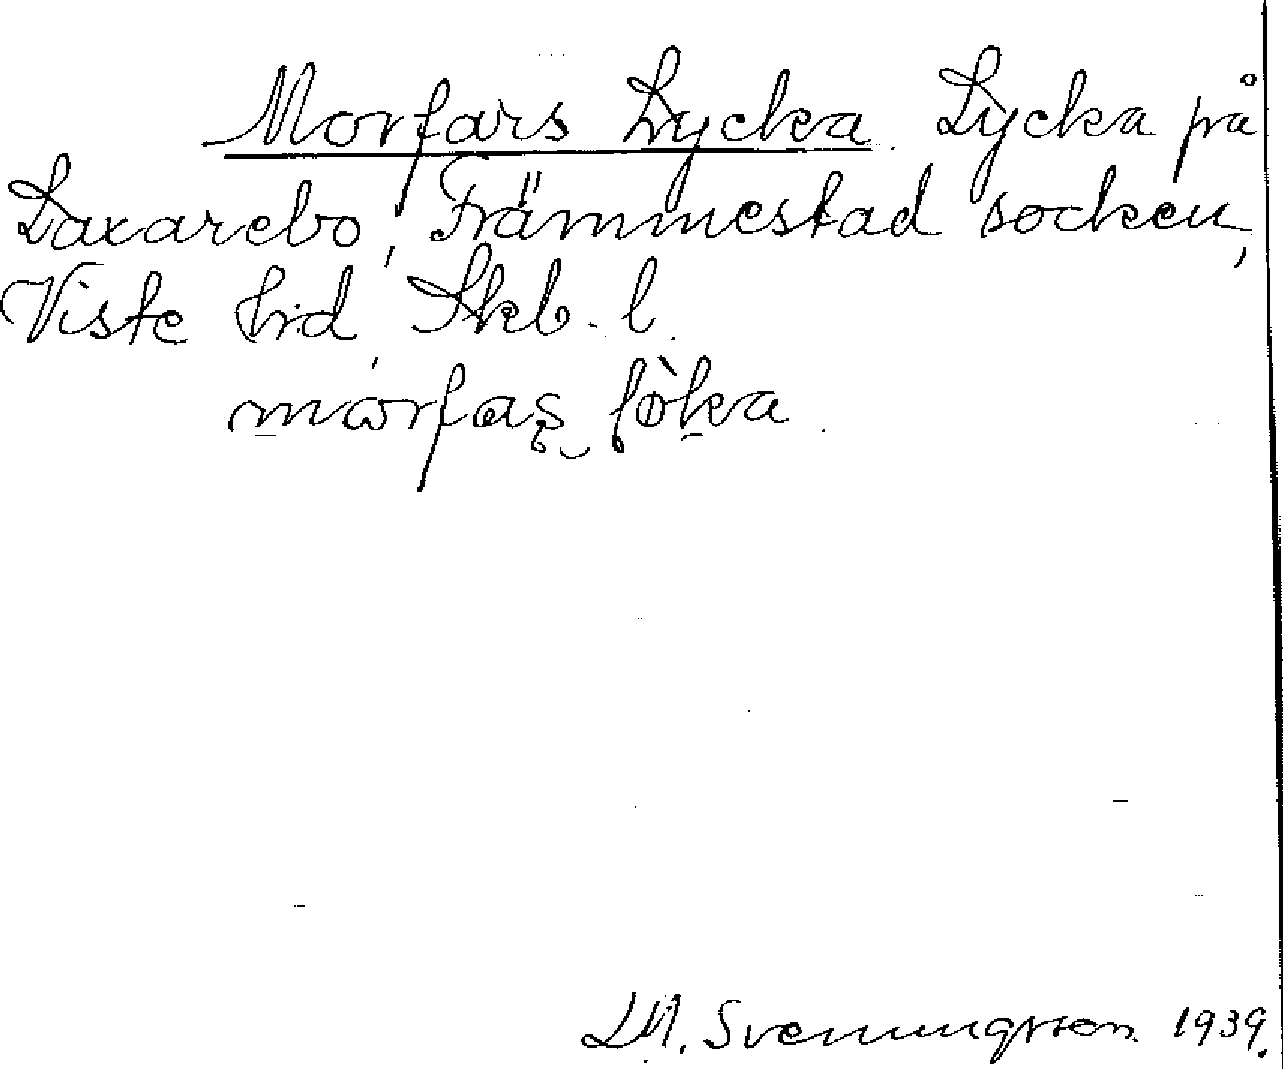 Morfars Lycka. Lycka på
Laxarebo, Främmestad socken,
Viste hrd, Skb. l.
L. M. Svenungsson 1939.